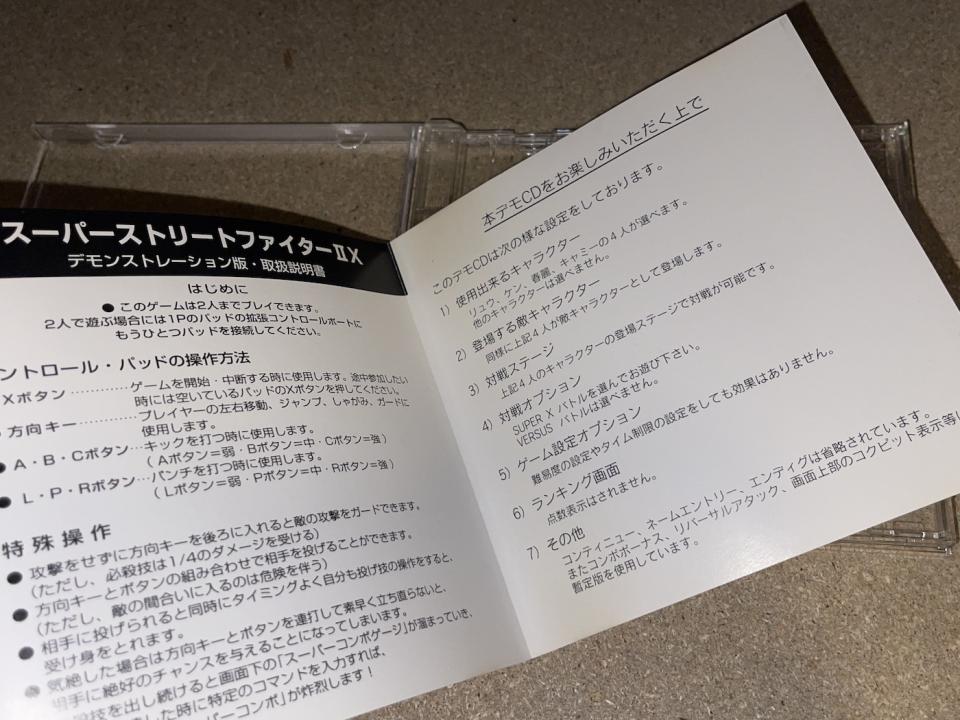 スーパーストリートファイターⅡX
デモンストレーション版・取扱説明書
はじめに
● このゲームは2人までプレイできます。
2人で遊ぶ場合には1Pのパッドの拡張コントロールポートに
もうひとつパッドを接続してください。
ントロール・パッドの操作方法
Xボタン…………ゲームを開始・中断する時に使用します。途中参加したい
時には空いているパッドのXボタンを押してください。
方向キー…………プレイヤーの左右移動、ジャンプ、しゃがみ、ガードに
使用します。
● A・B・Cボタン…キックを打つ時に使用します。
(Aボタン=弱・Bボタン=中・Cボタン=強)
● L・P・Rボタン…パンチを打つ時に使用します。
(Lボタン=弱・Pボタン=中・Rボタン=強)
特殊操作
● 攻撃をせずに方向キーを後ろに入れると敵の攻撃をガードできます。
(ただし、必殺技は1/4のダメージを受ける)
● 方向キーとボタンの組み合わせで相手を投げることができます。
(ただし、敵の間合いに入るのは危険を伴う)
● 相手に投げられると同時にタイミングよく自分も投げ技の操作をすると、
受け身をとれます。
● 気絶した場合は方向キーとボタンを連打して素早く立ち直らないと、
相手に絶好のチャンスを与えることになってしまいます。
技を出し続けると画面下の「スーパーコンボゲージ」が溜まっていき、
した時に特定のコマンドを入力すれば、
ーパーコンボ」が炸裂します!
本デモCDをお楽しみいただく上で
このデモCDは次の様な設定をしております。
1) 使用出来るキャラクター
リュウ、ケン、春麗、キャミーの4人が選べます。
他のキャラクターは選べません。
2) 登場する敵キャラクター
同様に上記4人が敵キャラクターとして登場します。
3) 対戦ステージ
上記4人のキャラクターの登場ステージで対戦が可能です。
4) 対戦オプション
SUPER X バトルを選んでお遊び下さい。
VERSUS バトルは選べません。
5) ゲーム設定オプション
難易度の設定やタイム制限の設定をしても効果はありません。
6) ランキング画面
点数表示はされません。
7) その他
コンティニュー、ネームエントリー、エンディグは省略されています。
またコンボボーナス、リバーサルアタック、画面上部のコクピット表示等は
暫定版を使用しています。